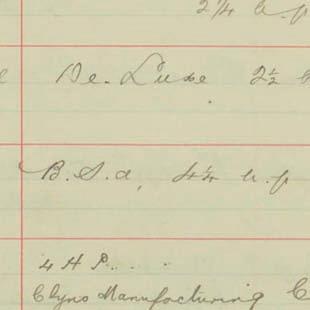 2¼ h.p
De. Luxe 2½ h
B.S.A, 4¼ h.p
4 H P...
Clyno Manufacturing C